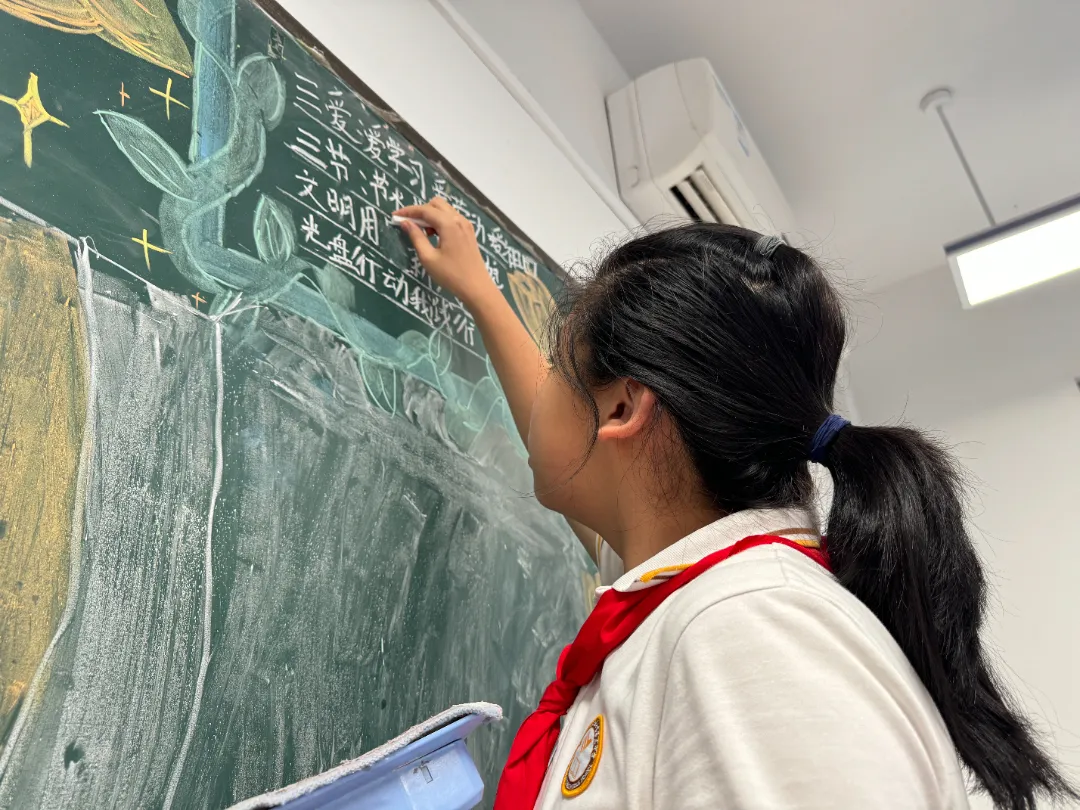 三爱:爱学习 爱劳动 爱祖国
三节:节水
文明用
光盘行动我践行